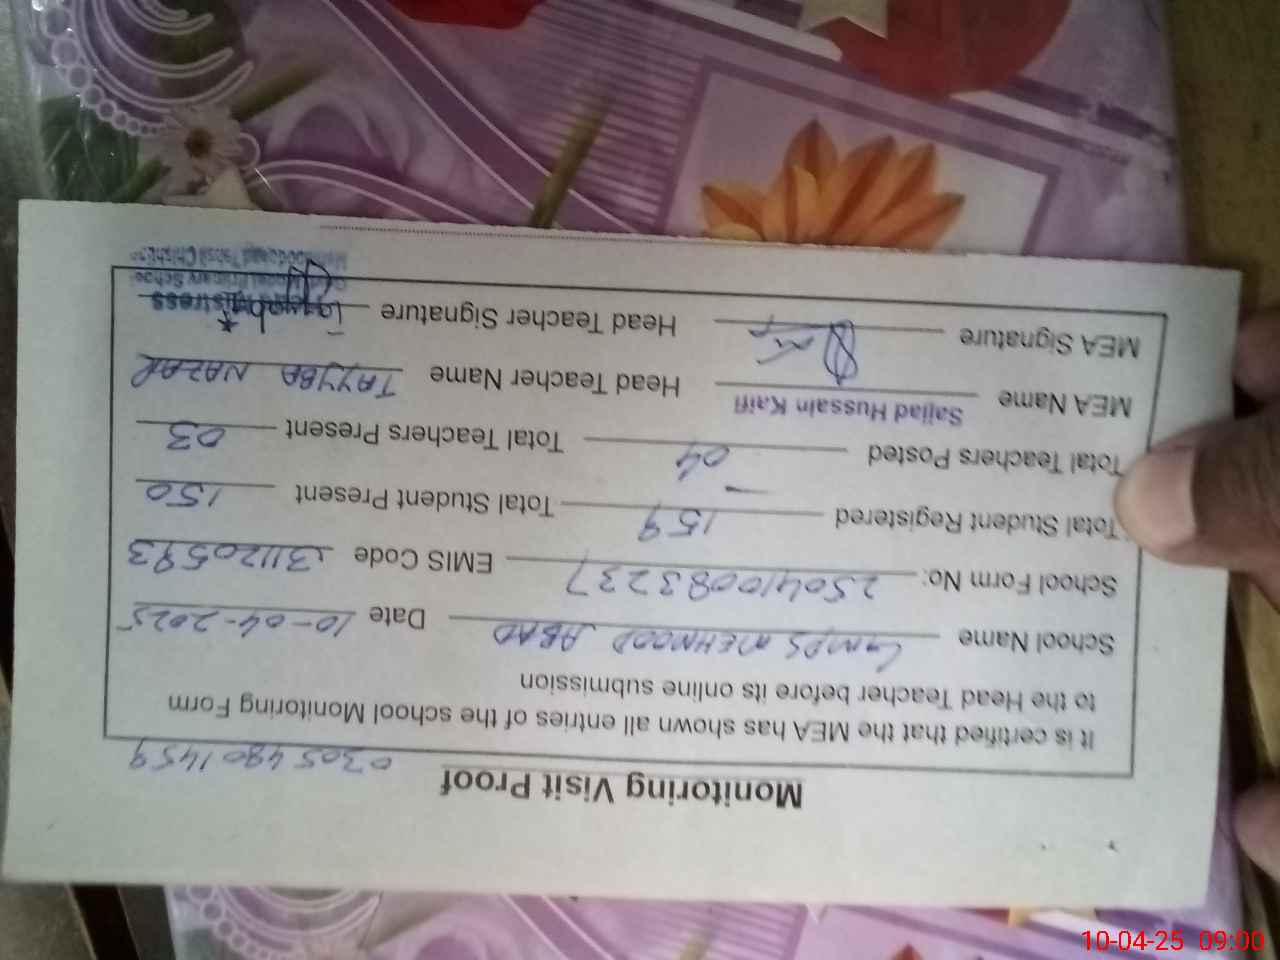 Monitoring Visit Proof
0305 4801459
It is certified that the MEA has shown all entries of the school Monitoring Form
to the Head Teacher before its online submission
School Name GMPS MEHMOOD ABAD Date 10-04-2025
School Form No: 250410083237 EMIS Code 31120593
Total Student Registered 159 Total Student Present 150
Total Teachers Posted 04 Total Teachers Present 03
MEA Name Sajjad Hussain Kaifi Head Teacher Name TAYYBA NAZAR
MEA Signature Head Teacher Signature Tayyaba
Primary School
10-04-25 09:00